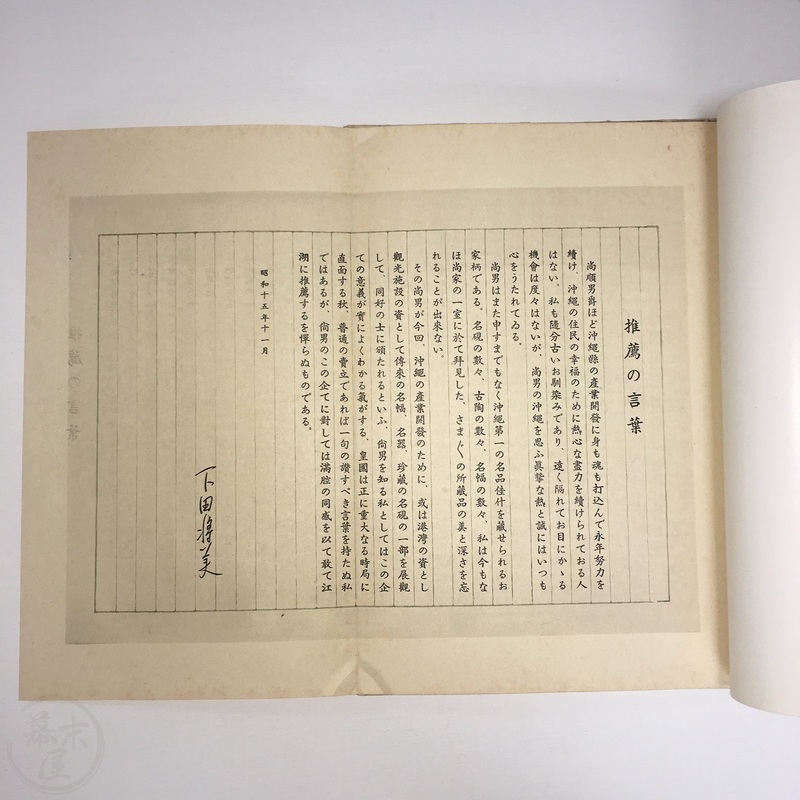 推薦の言葉
尚順男爵ほど沖繩縣の產業開發に身も魂も打込んで永年努力を
續け、沖繩の住民の幸福のために熱心な盡力を續けられておる人
はない。私も隨分古いお馴染みであり、遠く隔れてお目にかゝる
機會は度々はないが、尚男の沖繩を思ふ眞摯な熱と誠にはいつも
心をうたれてゐる。
尚男はまた申すまでもなく沖繩第一の名品佳什を藏せられるお
家柄である。名硯の數々、古陶の數々、名幅の數々、私は今もな
ほ尚家の一室に於て拜見した、さま〴〵の所藏品の美と深さを忘
れることが出來ない。
その尚男が今回、沖繩の產業開發のために、或は港灣の資とし
觀光施設の資として傳來の名幅、名器、珍藏の名硯の一部を展觀
して、同好の士に頒たれるといふ、尙男を知る私としてはこの企
ての意義が實によくわかる氣がする、皇國は正に重大なる時局に
直面する秋、普通の賣立であれば一句の讚すべき言葉を持たぬ私
ではあるが、尙男のこの企てに對しては滿腔の同感を以て敢て江
湖に推薦するを憚らぬものである。
昭和十五年十一月
下田將美
幕末屋